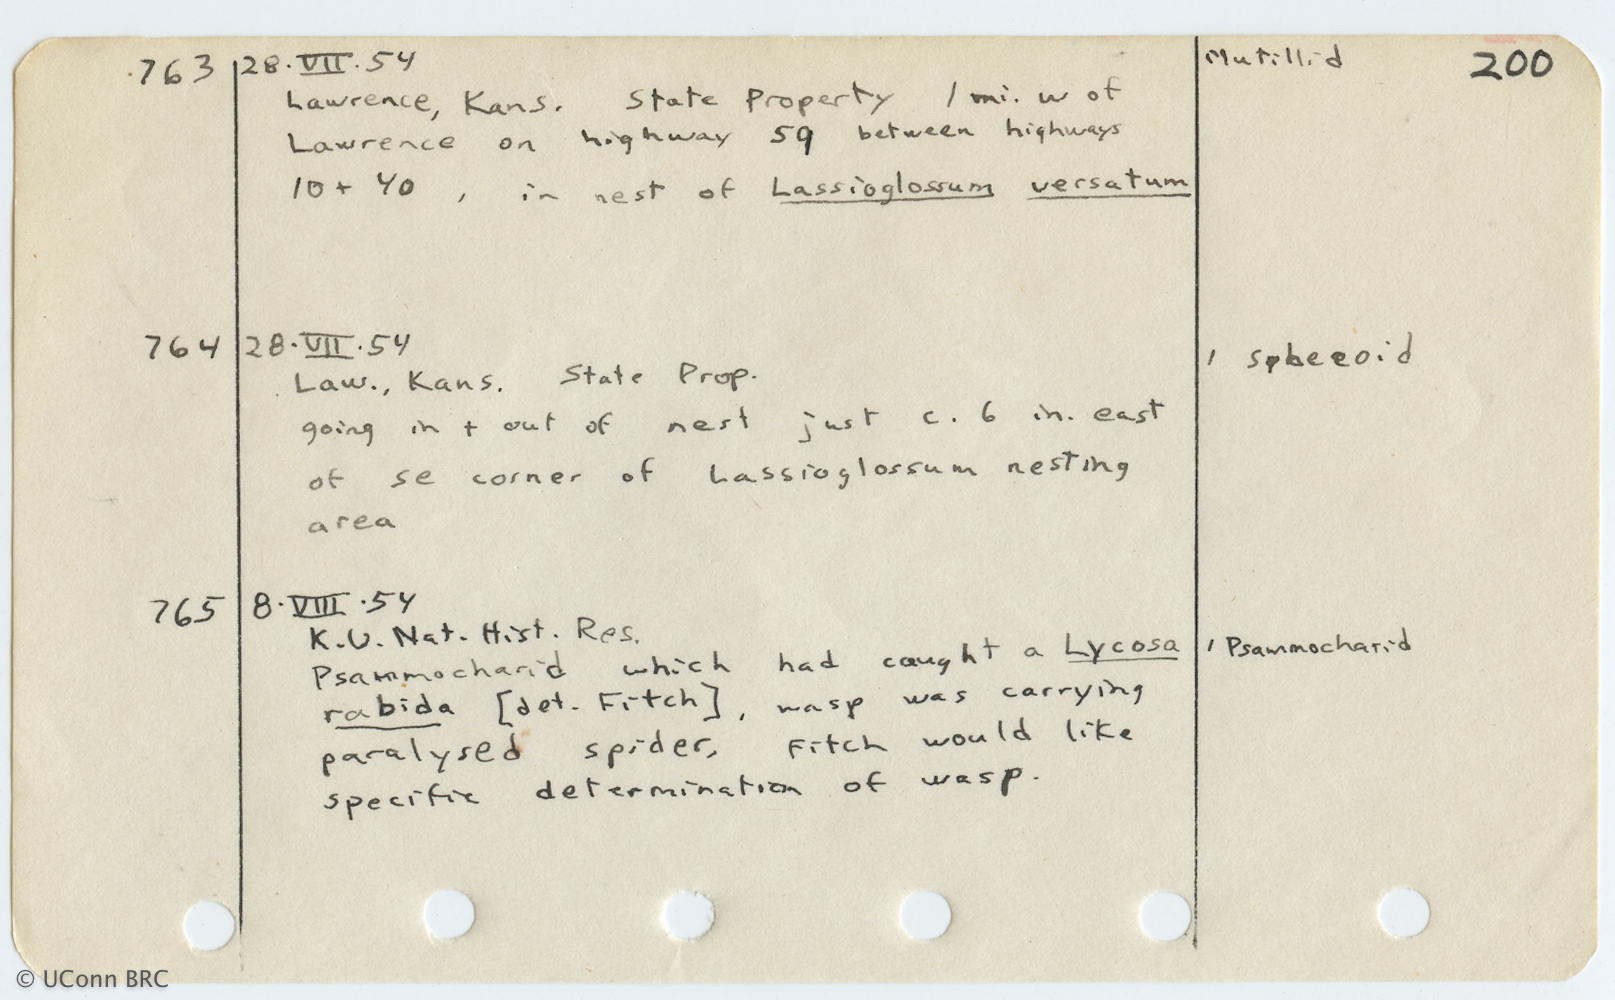 200
763 28·VII·54 Mutillid
Lawrence, Kans. State Property 1 mi. w of
Lawrence on highway 59 between highways
10 + 40 , in nest of Lassioglossum versatum
764 28·VII·54 1 spheeoid
Law., Kans. State Prop.
going in + out of nest just c. 6 in. east
of se corner of Lassioglossum nesting
area
765 8·VIII·54
K.U. Nat. Hist. Res. 1 Psammocharid
Psammocharid which had caught a Lycosa
rabida [det. Fitch], wasp was carrying
paralysed spider, Fitch would like
specific determination of wasp.
© UConn BRC